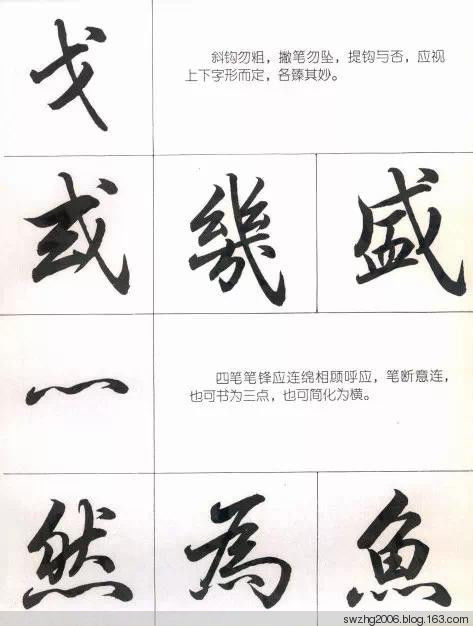 戈
斜钩勿粗，撇笔勿坠，提钩与否，应视
上下字形而定，各臻其妙。
或 幾 盛
灬
四笔笔锋应连绵相顾呼应，笔断意连，
也可书为三点，也可简化为横。
然 為 魚
swzhg2006.blog.163.com